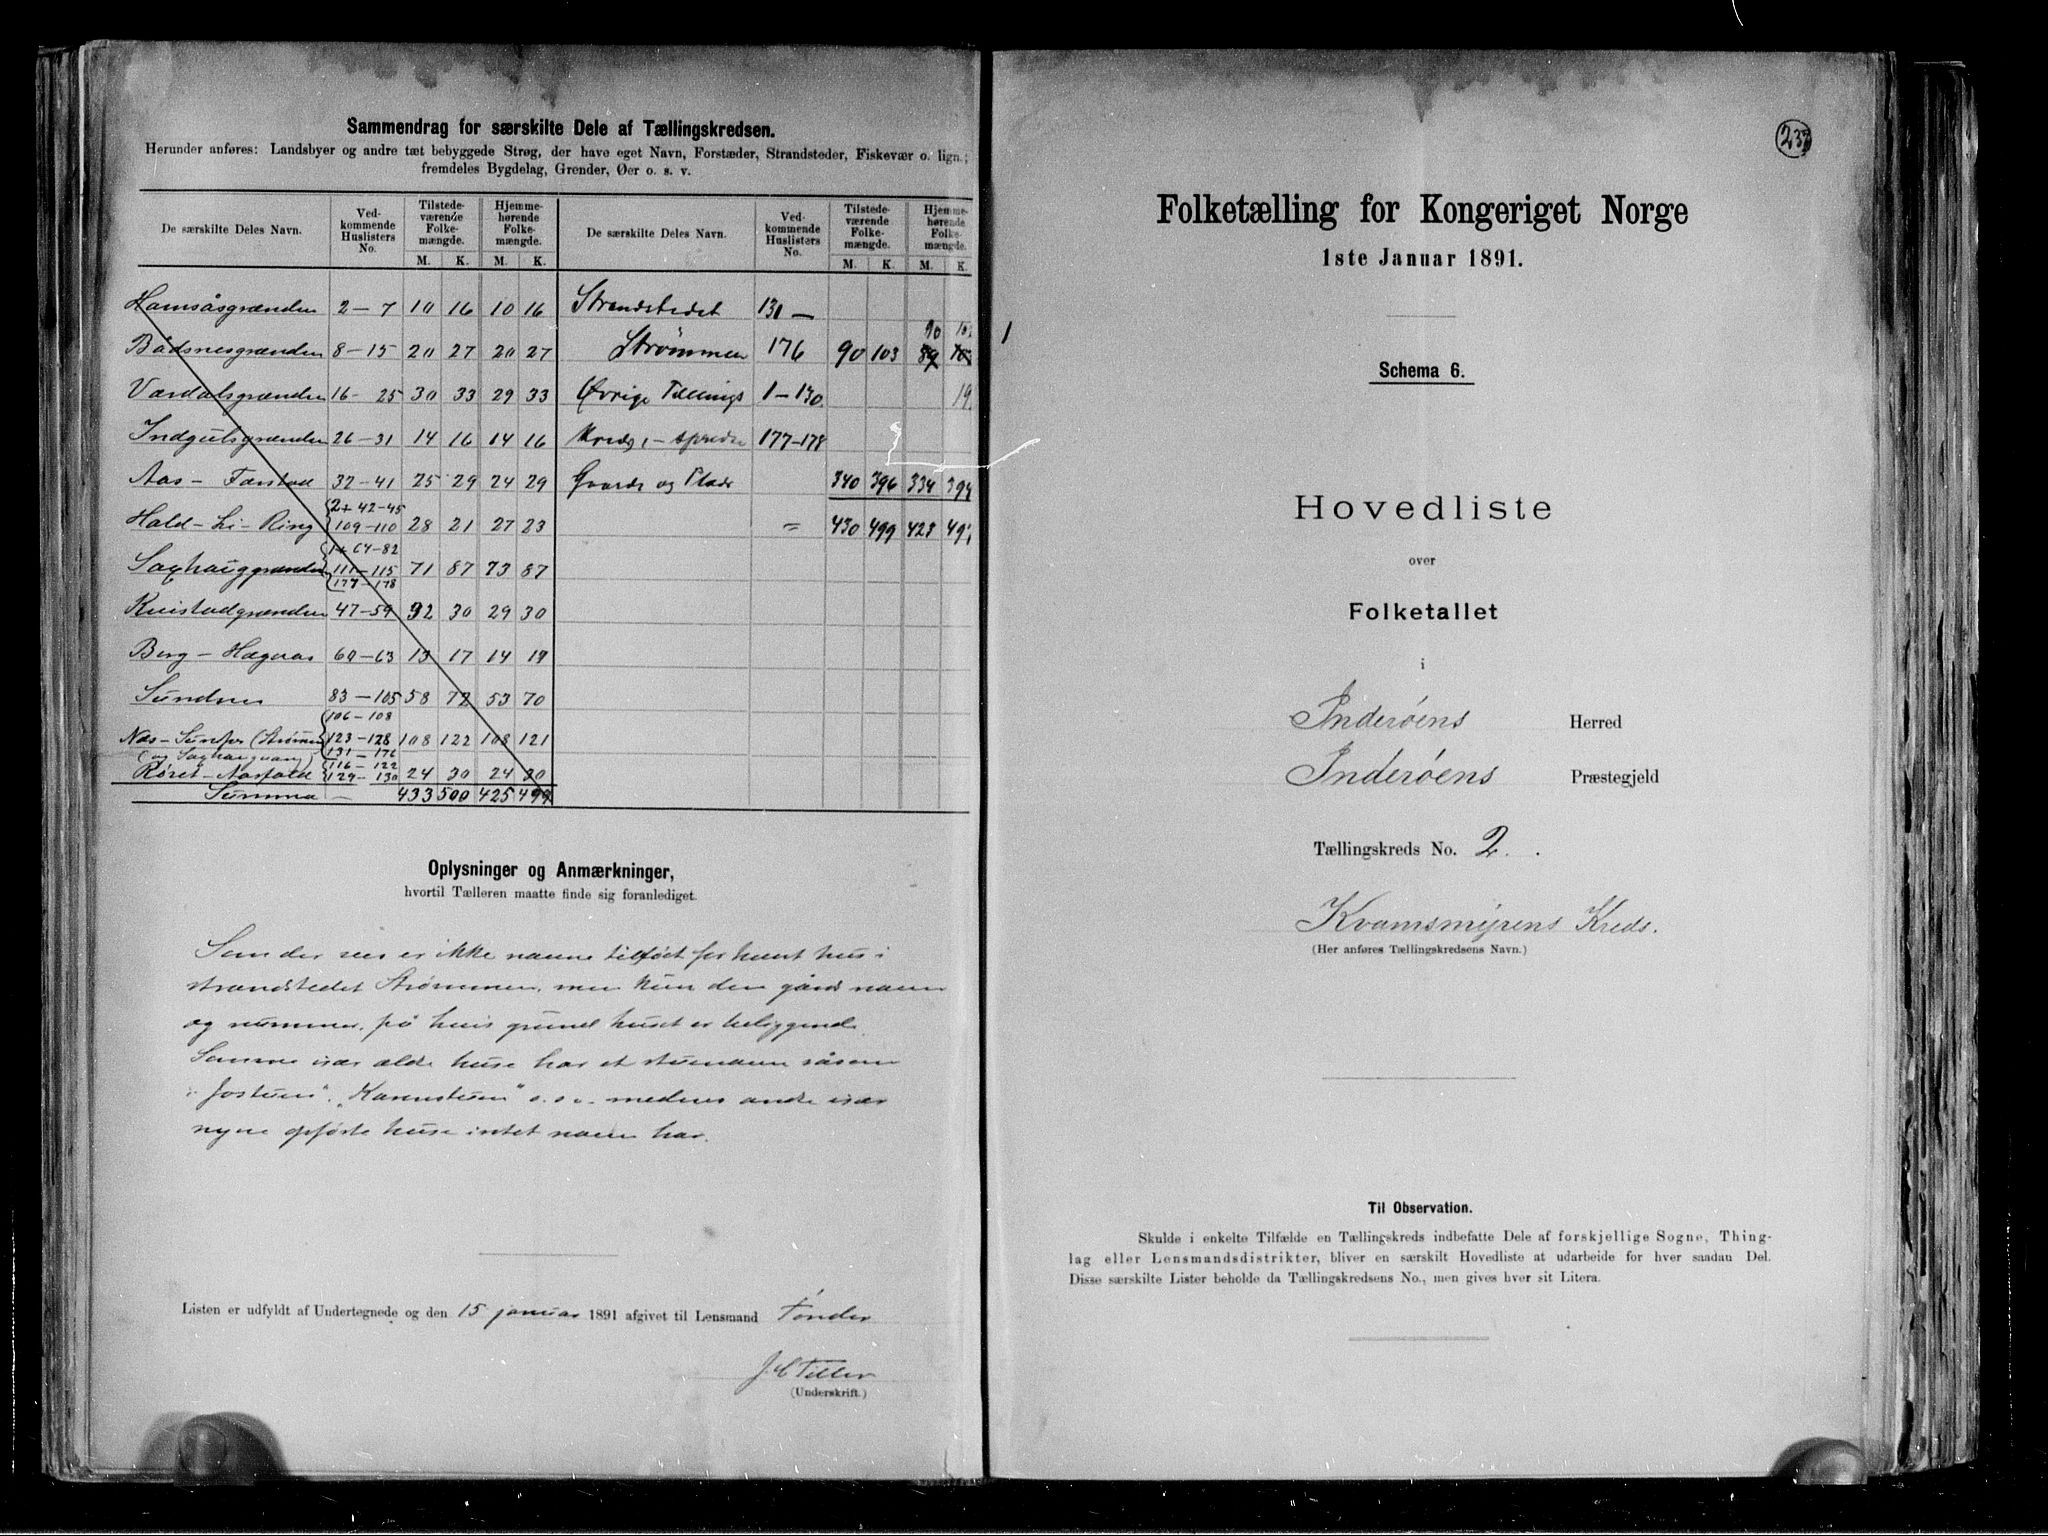 Sammendrag for særskilte Dele af Tællingskredsen.
Herunder anføres: Landsbyer og andre tæt bebyggede Strøg, der have eget Navn, Forstæder, Strandsteder, Fiskevær o. lign.;
fremdeles Bygdelag, Grender, Øer o. s. v.
De særskilte Deles Navn. Ved-kommende Huslisters No. Tilstede-værende Folke-mængde. Hjemme-hørende Folke-mængde. De særskilte Deles Navn. Ved-kommende Huslisters No. Tilstede-værende Folke-mængde. Hjemme-hørende Folke-mængde.
M. K. M. K. M. K. M. K.
Hamsåsgrænden 2-7 10 16 10 16 Strandstedet 130 -
Bådsnesgrænden 8-15 20 27 20 27 Strømmen 176 90 103 90
Værdalsgrænden 16-25 30 33 29 33 Øvrige Tællings 1-130
Indgutsgrænden 26-31 14 16 14 16 Kreds, - spredte 177-178
Aas - Færstad 32-41 25 29 24 29 Gaarde og Pladse 340 396 334 394
Hald-Li-Ring 2+42-45 109-110 28 21 27 23 = 430 499 423
Saxhauggrænden 1+64-82 111-115 177-178 71 87 73 87
Kvistadgrænden 47-59 32 30 29 30
Berg - Hægaas 60-63 13 17 14 19
Sundnes 83-105 58 72 53 70
106-108
123-128 108 122 108 121
131-176
Røset-Aasfald 116-122 129-130 24 30 24 30
Summa - 433 500 425 499
Oplysninger og Anmærkninger,
hvortil Tælleren maatte finde sig foranlediget.
Som der sees er ikke navne tilføjet for hvert hus i
strandstedet Strømmen, men kun den gårds navn
og nummer, på hvis grund huset er beliggende.
Somme især ældre huse har et stuenavn såsom
"Jostuen", "Karenstuen" o.s.v. medens andre især
nyere opførte huse intet navn har.
Listen er udfyldt af Undertegnede og den 15 januar 1891 afgivet til Lensmand Tønder
J C Tiller
(Underskrift.)
232
Folketælling for Kongeriget Norge
1ste Januar 1891.
Schema 6.
Hovedliste
over
Folketallet
i
Inderøens Herred
Inderøens Præstegjeld
Tællingskreds No. 2.
Kvamsmyrens Kreds.
(Her anføres Tællingskredsens Navn.)
Til Observation.
Skulde i enkelte Tilfælde en Tællingskreds indbefatte Dele af forskjellige Sogne, Thing-
lag eller Lensmandsdistrikter, bliver en særskilt Hovedliste at udarbeide for hver saadan Del.
Disse særskilte Lister beholde da Tællingskredsens No., men gives hver sit Litera.